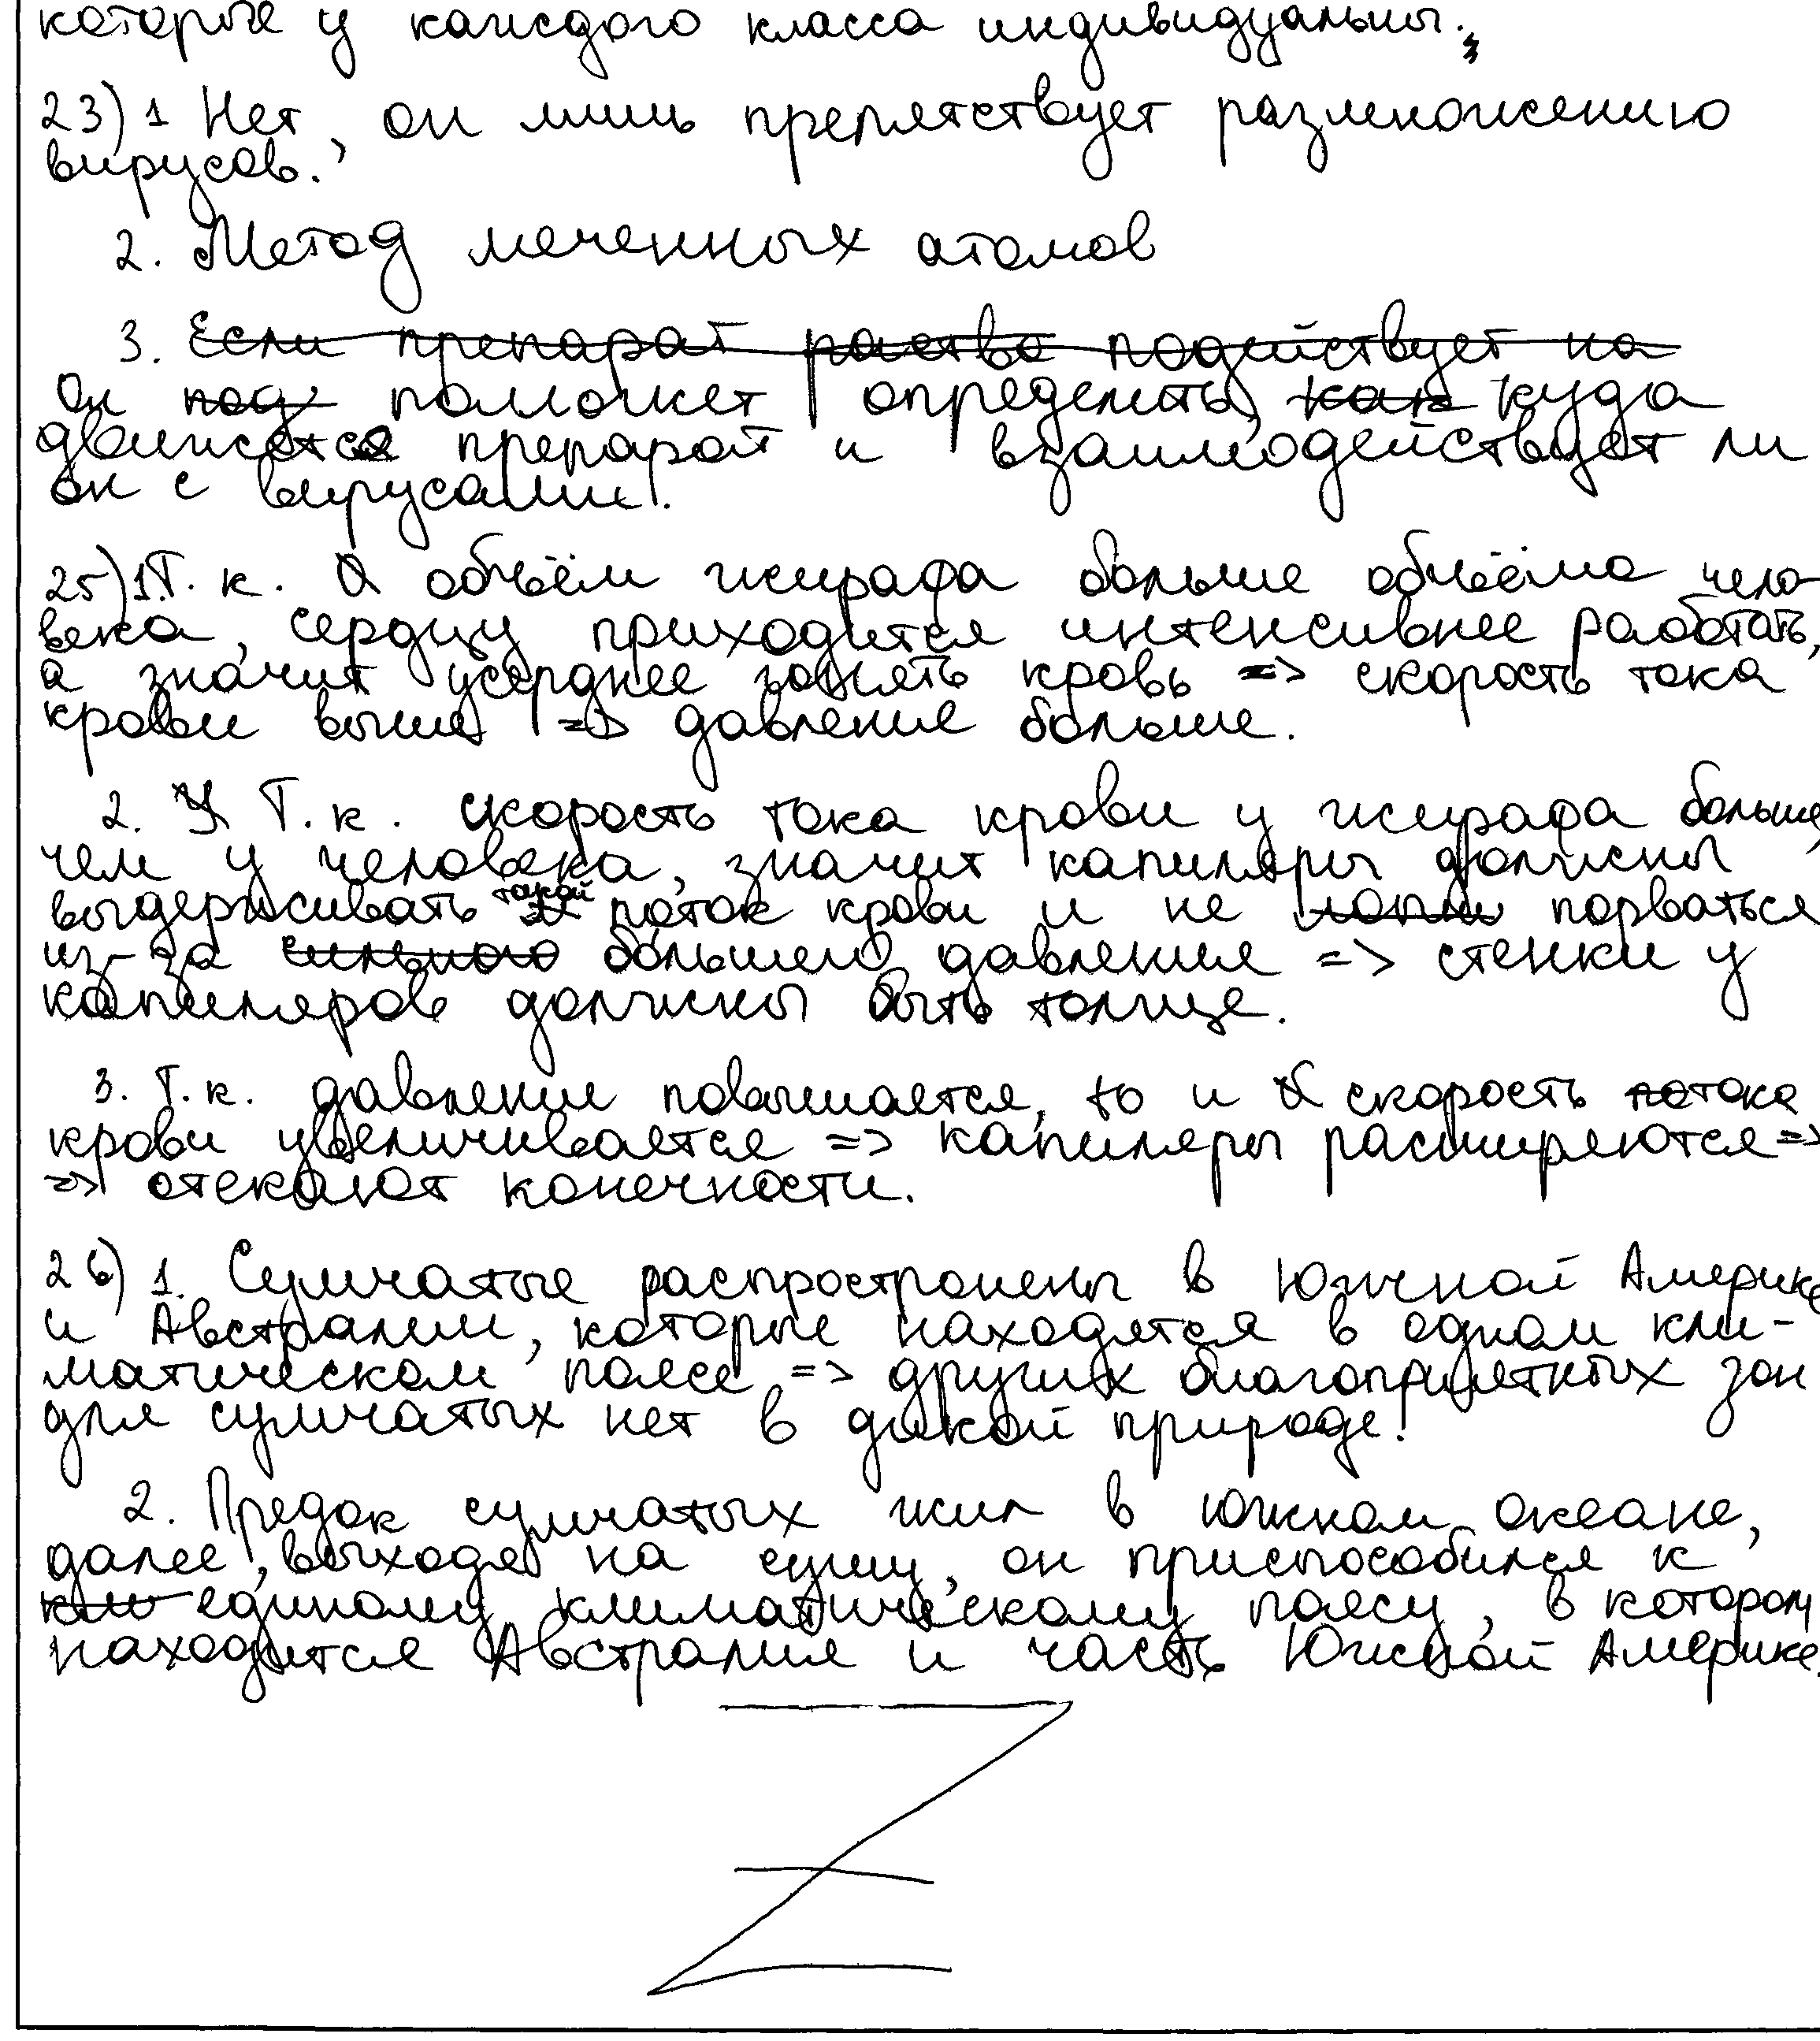 которые у каждого класса индивидуальны.
23) 1 Нет, он лишь препятствует размножению
вирусов.
2. Метод меченных атомов
3. Если препарат раство подействует на
Он под поможет определить, как куда
движется препарат и взаимодействует ли
он с вирусами.
25) 1. Т. к. объём жирафа больше объёма чело-
века, сердцу приходится интенсивнее работать,
а значит усерднее гонять кровь => скорость тока
крови выше => давление больше.
2. У Т. к. скорость тока крови у жирафа больше,
чем у человека, значит капиляры должны
выдерживать такой поток крови и не порваться
из-за сильного большего давления => стенки у
капиляров должны быть толще.
3. Т. к. давление повышается, то и скорость потока
крови увеличивается => капиляры расширяются =>
=> отекают конечности.
26) 1. Сумчатые распространены в Южной Америке
и Австралии, которые находятся в одном кли-
матическом поясе => других благоприятных зон
для сумчатых нет в дикой природе.
2. Предок сумчатых жил в южном океане,
далее, выходя на сушу, он приспособился к
кли единому климатическому поясу, в котором
находится Австралия и часть Южной Америке.